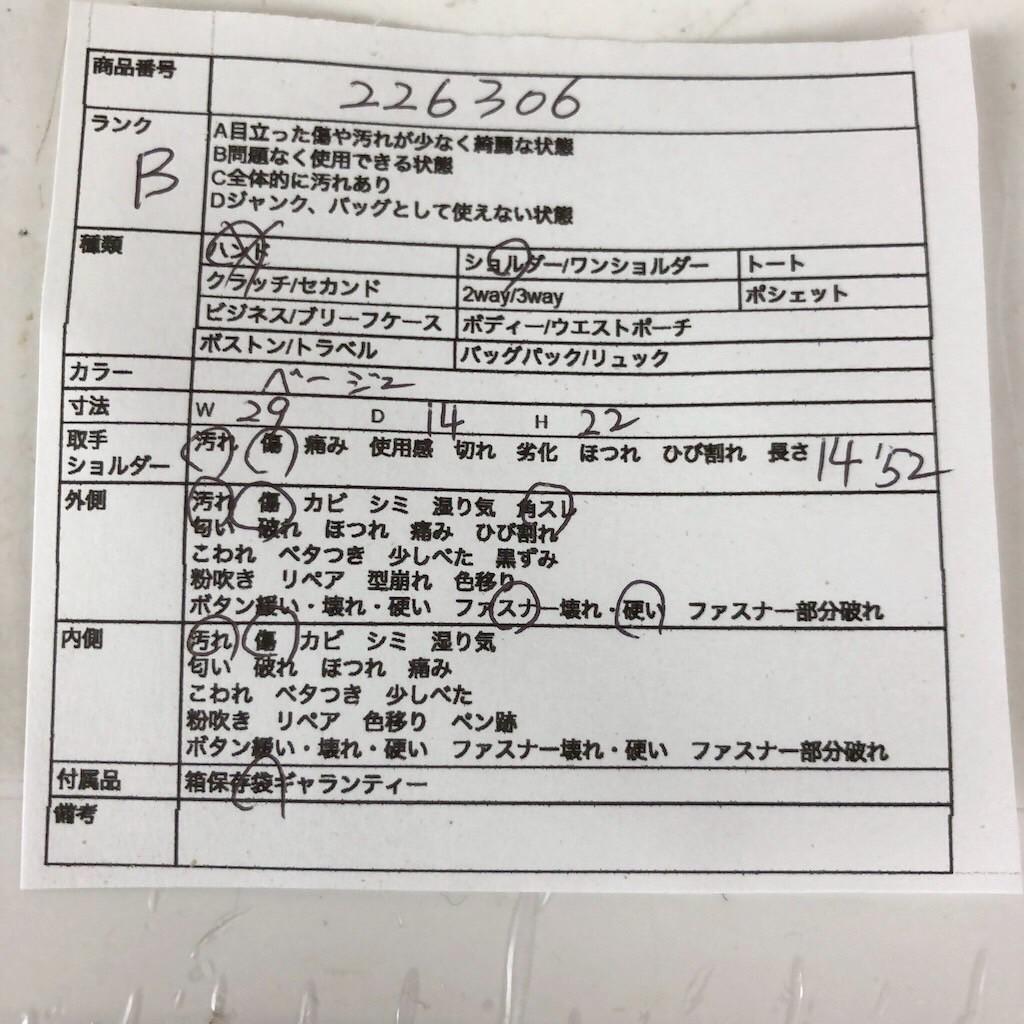 商品番号 226306
ランク B
A目立った傷や汚れが少なく綺麗な状態
B問題なく使用できる状態
C全体的に汚れあり
Dジャンク、バッグとして使えない状態
種類 ハンド ショルダー/ワンショルダー トート
クラッチ/セカンド 2way/3way ポシェット
ビジネス/ブリーフケース ボディー/ウエストポーチ
ボストン/トラベル バッグパック/リュック
カラー ベージュ
寸法 W 29 D 14 H 22
取手 汚れ 傷 痛み 使用感 切れ 劣化 ほつれ ひび割れ 長さ 14'52
ショルダー
外側 汚れ 傷 カビ シミ 湿り気 角スレ
匂い 破れ ほつれ 痛み ひび割れ
こわれ ベタつき 少しべた 黒ずみ
粉吹き リペア 型崩れ 色移り
ボタン緩い・壊れ・硬い ファスナー壊れ・硬い ファスナー部分破れ
内側 汚れ 傷 カビ シミ 湿り気
匂い 破れ ほつれ 痛み
こわれ ベタつき 少しべた
粉吹き リペア 色移り ペン跡
ボタン緩い・壊れ・硬い ファスナー壊れ・硬い ファスナー部分破れ
付属品 箱保存袋ギャランティー
備考